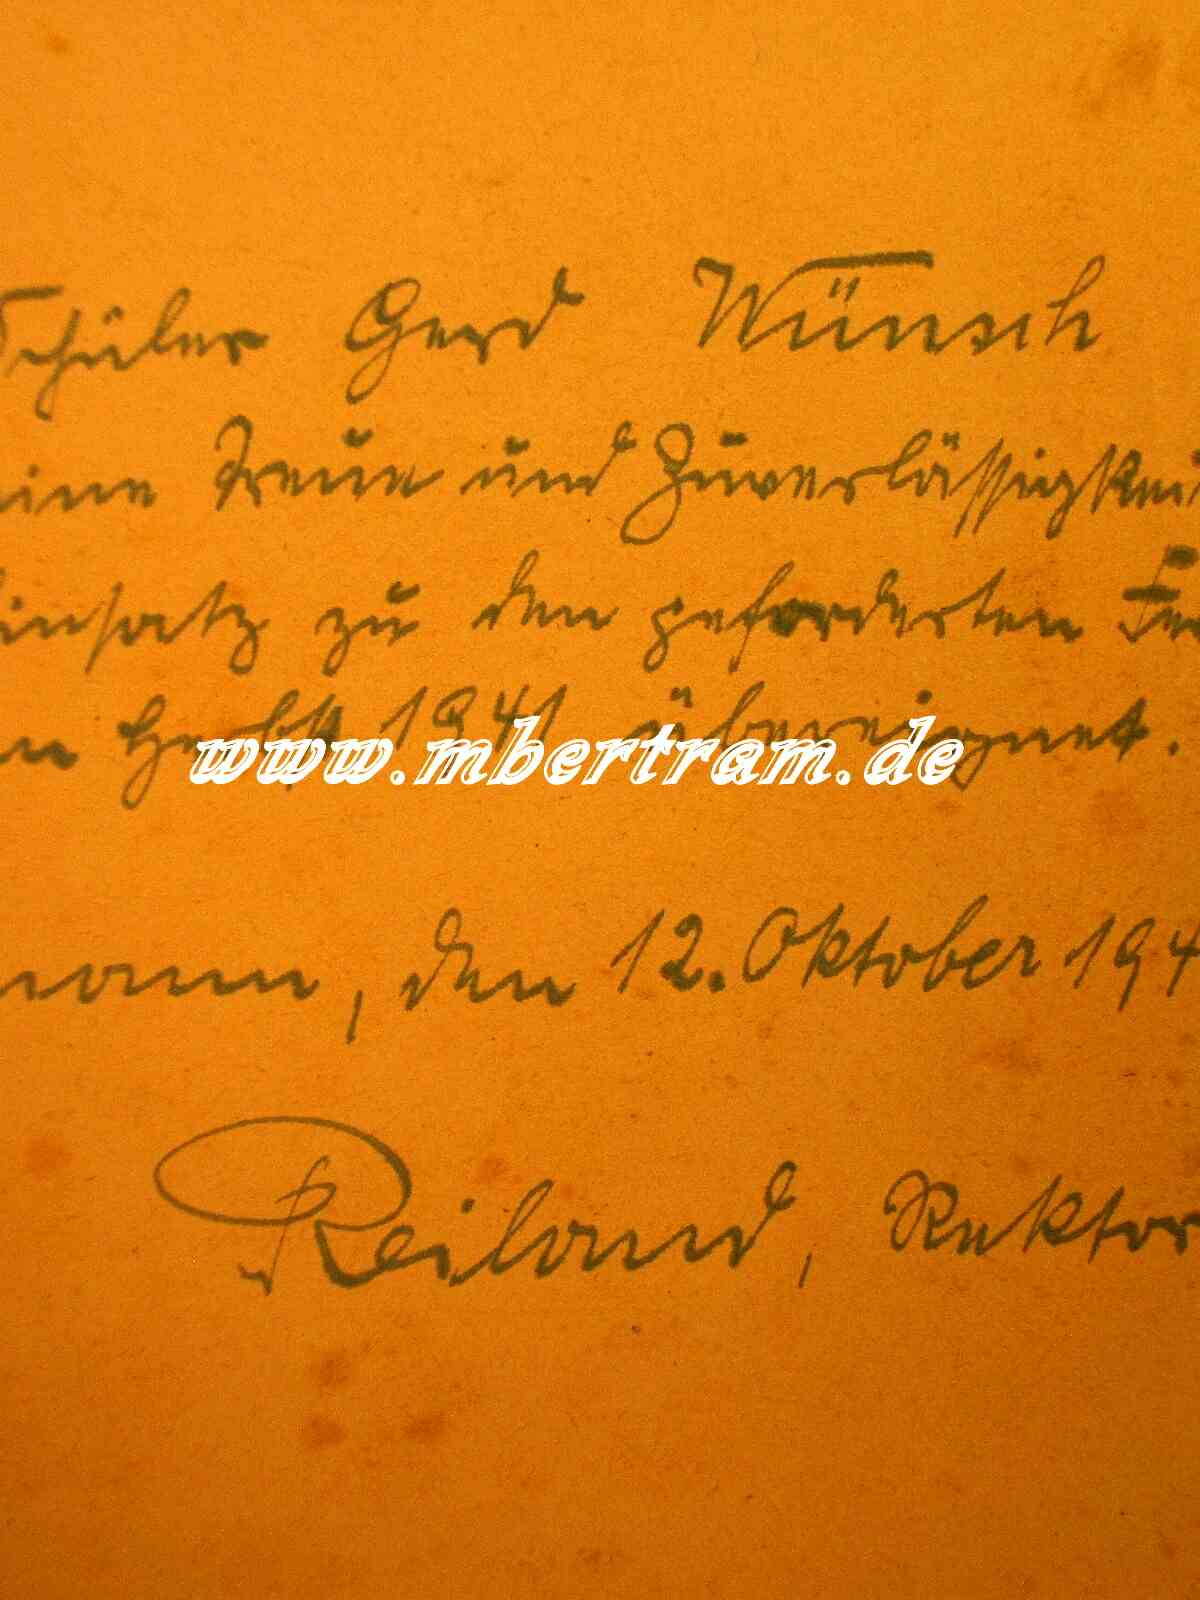 Schüler Gerd Wünsch
eine Treue und Zuverlässigkeit
Einsatz zu den geforderten
Herbst 1941 übereignet.
www.mbertram.de
mann, den 12. Oktober 194
Reiland, Rektor